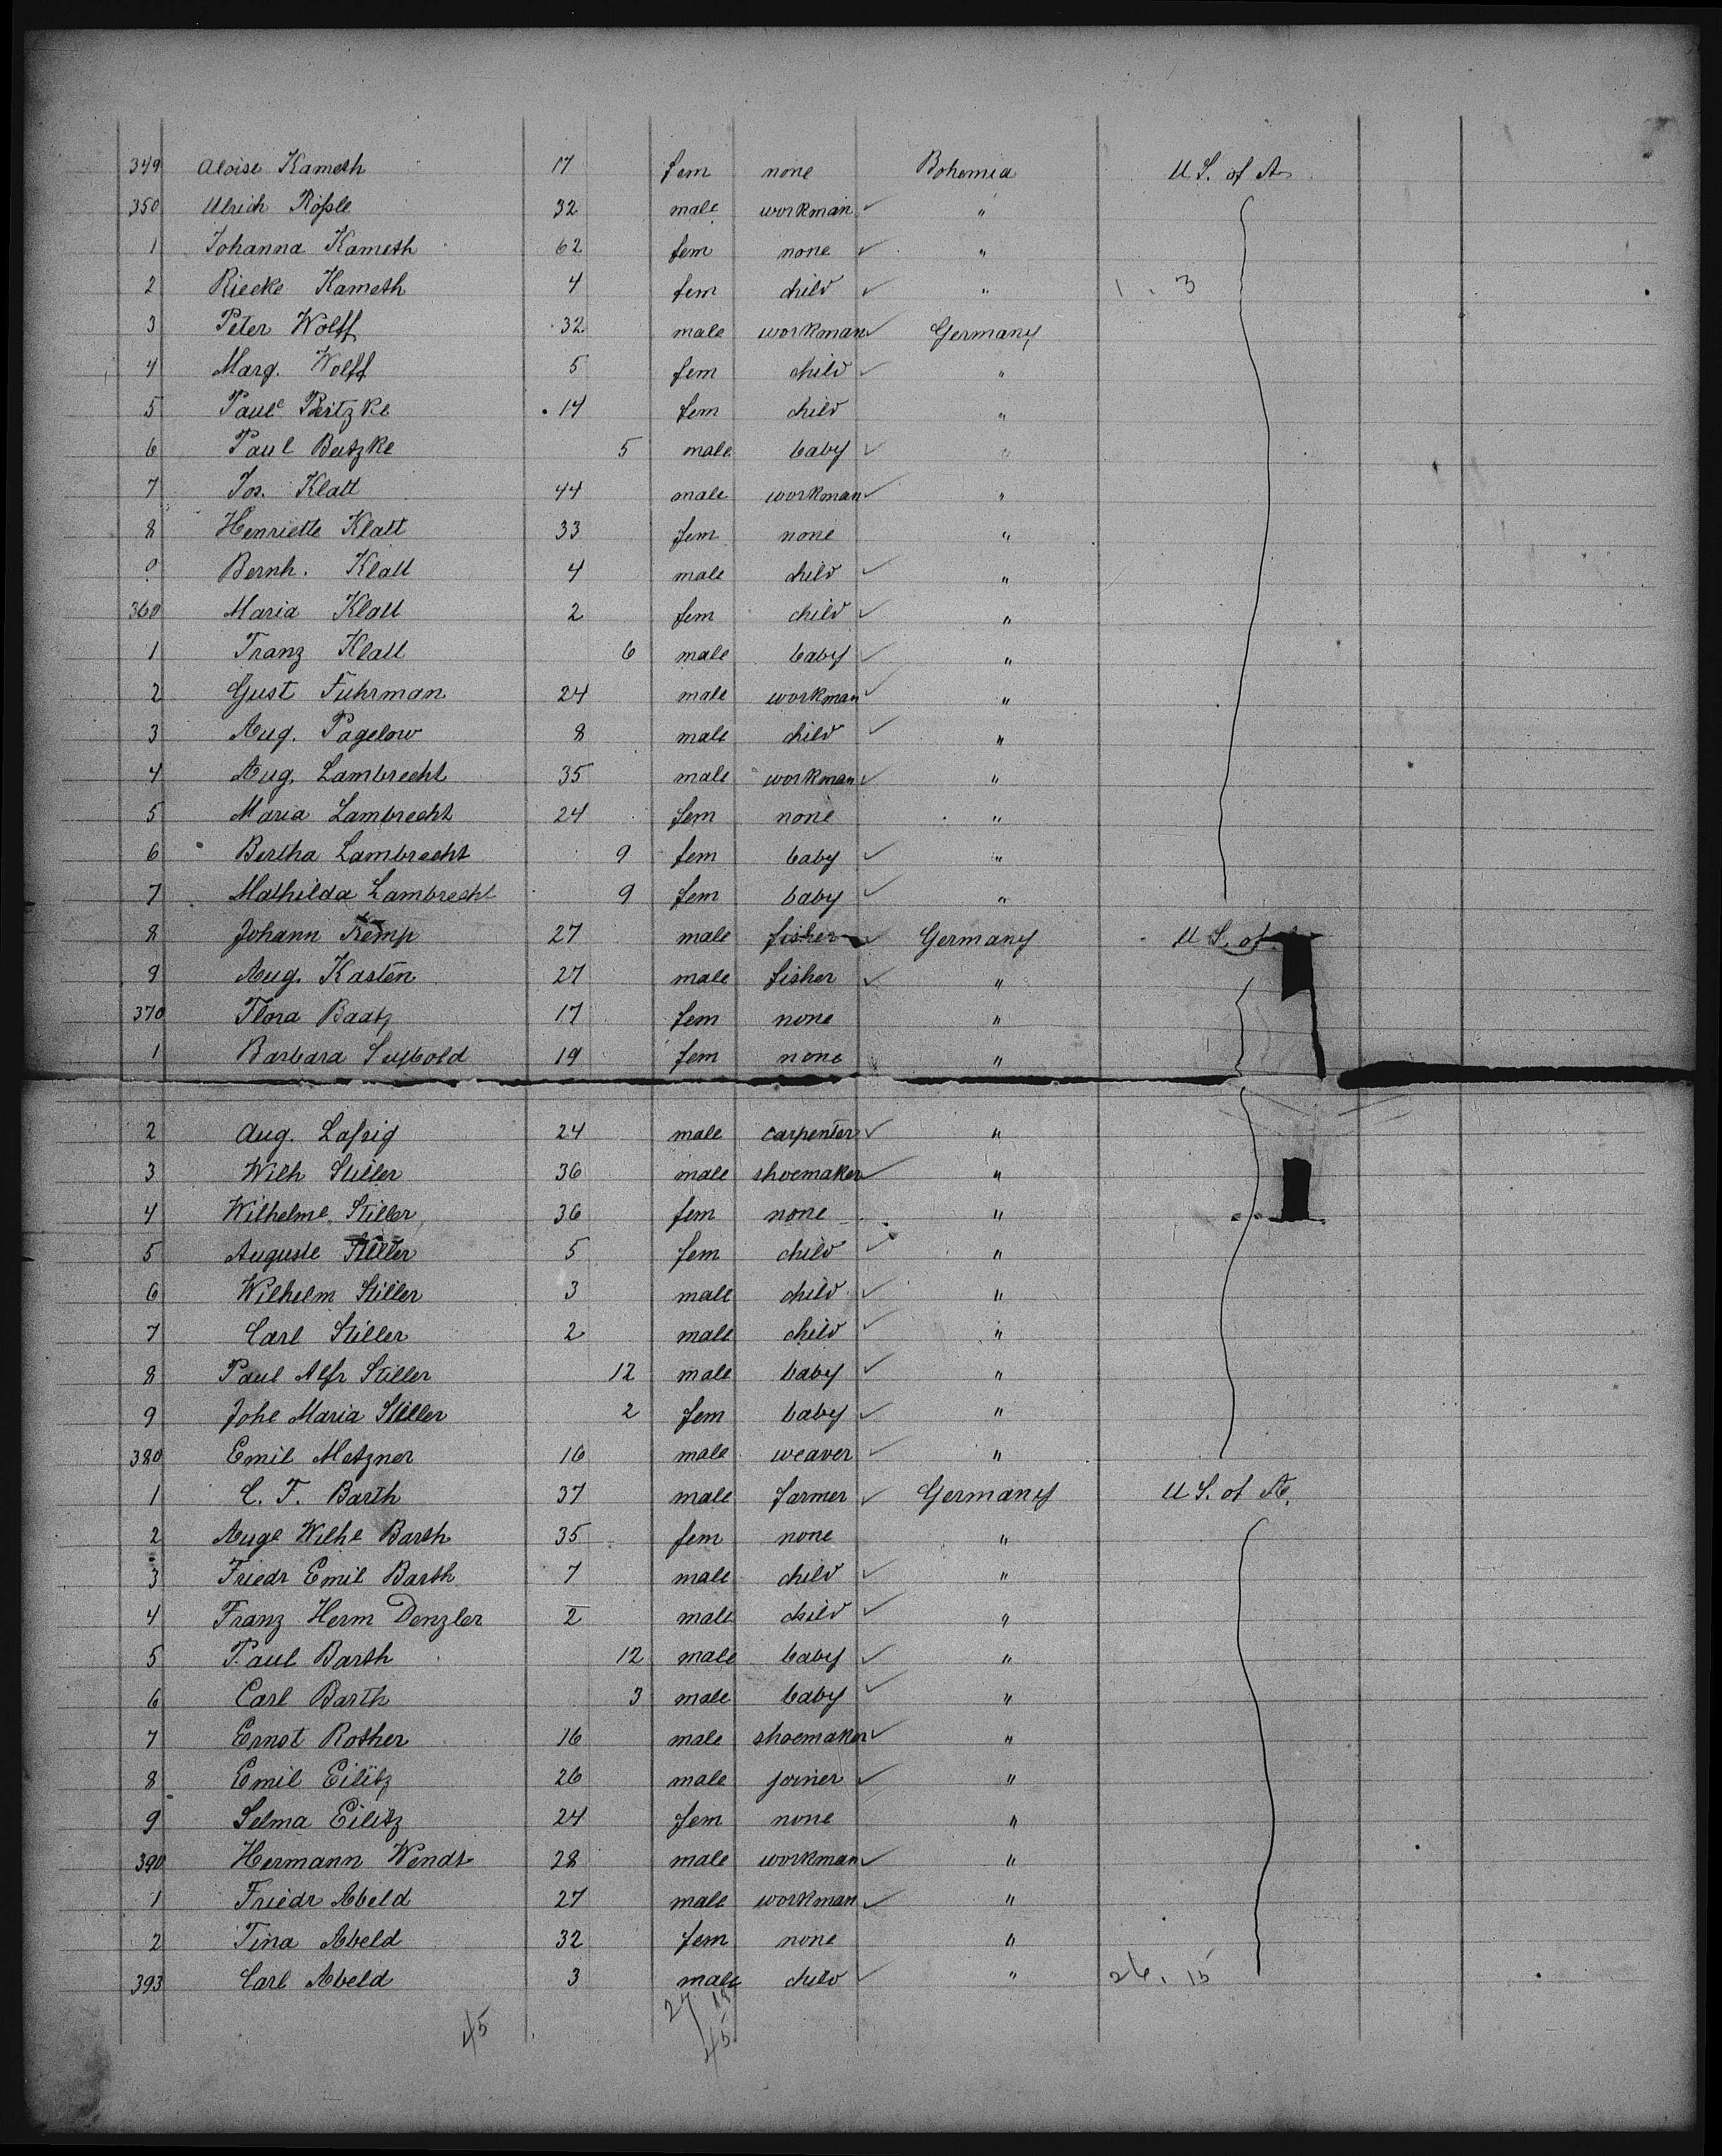 349 Aloise Kameth 17 fem none Bohemia U S. of A.
350 Ulrich Rößle 32 male workman ✓ "
1 Johanna Kameth 62 fem none ✓ "
2 Riecke Kameth 4 fem child ✓ " 1. 3
3 Peter Wolff 32 male workman ✓ Germany
4 Marg. Wolff 5 fem child ✓ "
5 Paule 14 fem child "
6 Paul 5 male baby ✓ "
7 Jos. Klatt 44 male workman ✓ "
8 Henriette Klatt 33 fem none "
9 Bernh. Klatt 4 male child ✓ "
360 Maria Klatt 2 fem child ✓ "
1 Franz Klatt 6 male baby ✓ "
2 Gust Fuhrman 24 male workman ✓ "
3 Aug. Pagelow 8 male child ✓ "
4 Aug. Lambrecht 35 male workman ✓ "
5 Maria Lambrecht 24 fem none "
6 Bertha Lambrecht 9 fem baby ✓ "
7 Mathilda Lambrecht 9 fem baby ✓ "
8 Johann Kemp 27 male fisher ✓ Germany U S. of
9 Aug. Kasten 27 male fisher ✓ "
370 Flora Baatz 17 fem none "
1 Barbara 19 fem none "
2 Aug. Laßig 24 male carpenter ✓ "
3 Wilh Stiller 36 male shoemaker ✓ "
4 Wilhelme Stiller 36 fem none "
5 Auguste Stiller 5 fem child ✓ "
6 Wilhelm Stiller 3 male child ✓ "
7 Carl Stiller 2 male child ✓ "
8 Paul Alfr Stiller 12 male baby ✓ "
9 Johe Maria Stiller 2 fem baby ✓ "
380 Emil Metzner 16 male weaver ✓ "
1 C. F. Barth 37 male farmer ✓ Germany U S. of A.
2 Auge Wilhe Barth 35 fem none "
3 Friedr Emil Barth 7 male child ✓ "
4 Franz Herm Denzler 2 male child ✓ "
5 Paul Barth 12 male baby ✓ "
6 Carl Barth 3 male baby ✓ "
7 Ernst Rother 16 male shoemaker ✓ "
8 Emil Eilitz 26 male joiner ✓ "
9 Selma Eilitz 24 fem none "
390 Hermann Wendt 28 male workman ✓ "
1 Friedr Abeld 27 male workman ✓ "
2 Tina Abeld 32 fem none "
393 Carl Abeld 3 male child ✓ " 26. 15
27 18
45 45